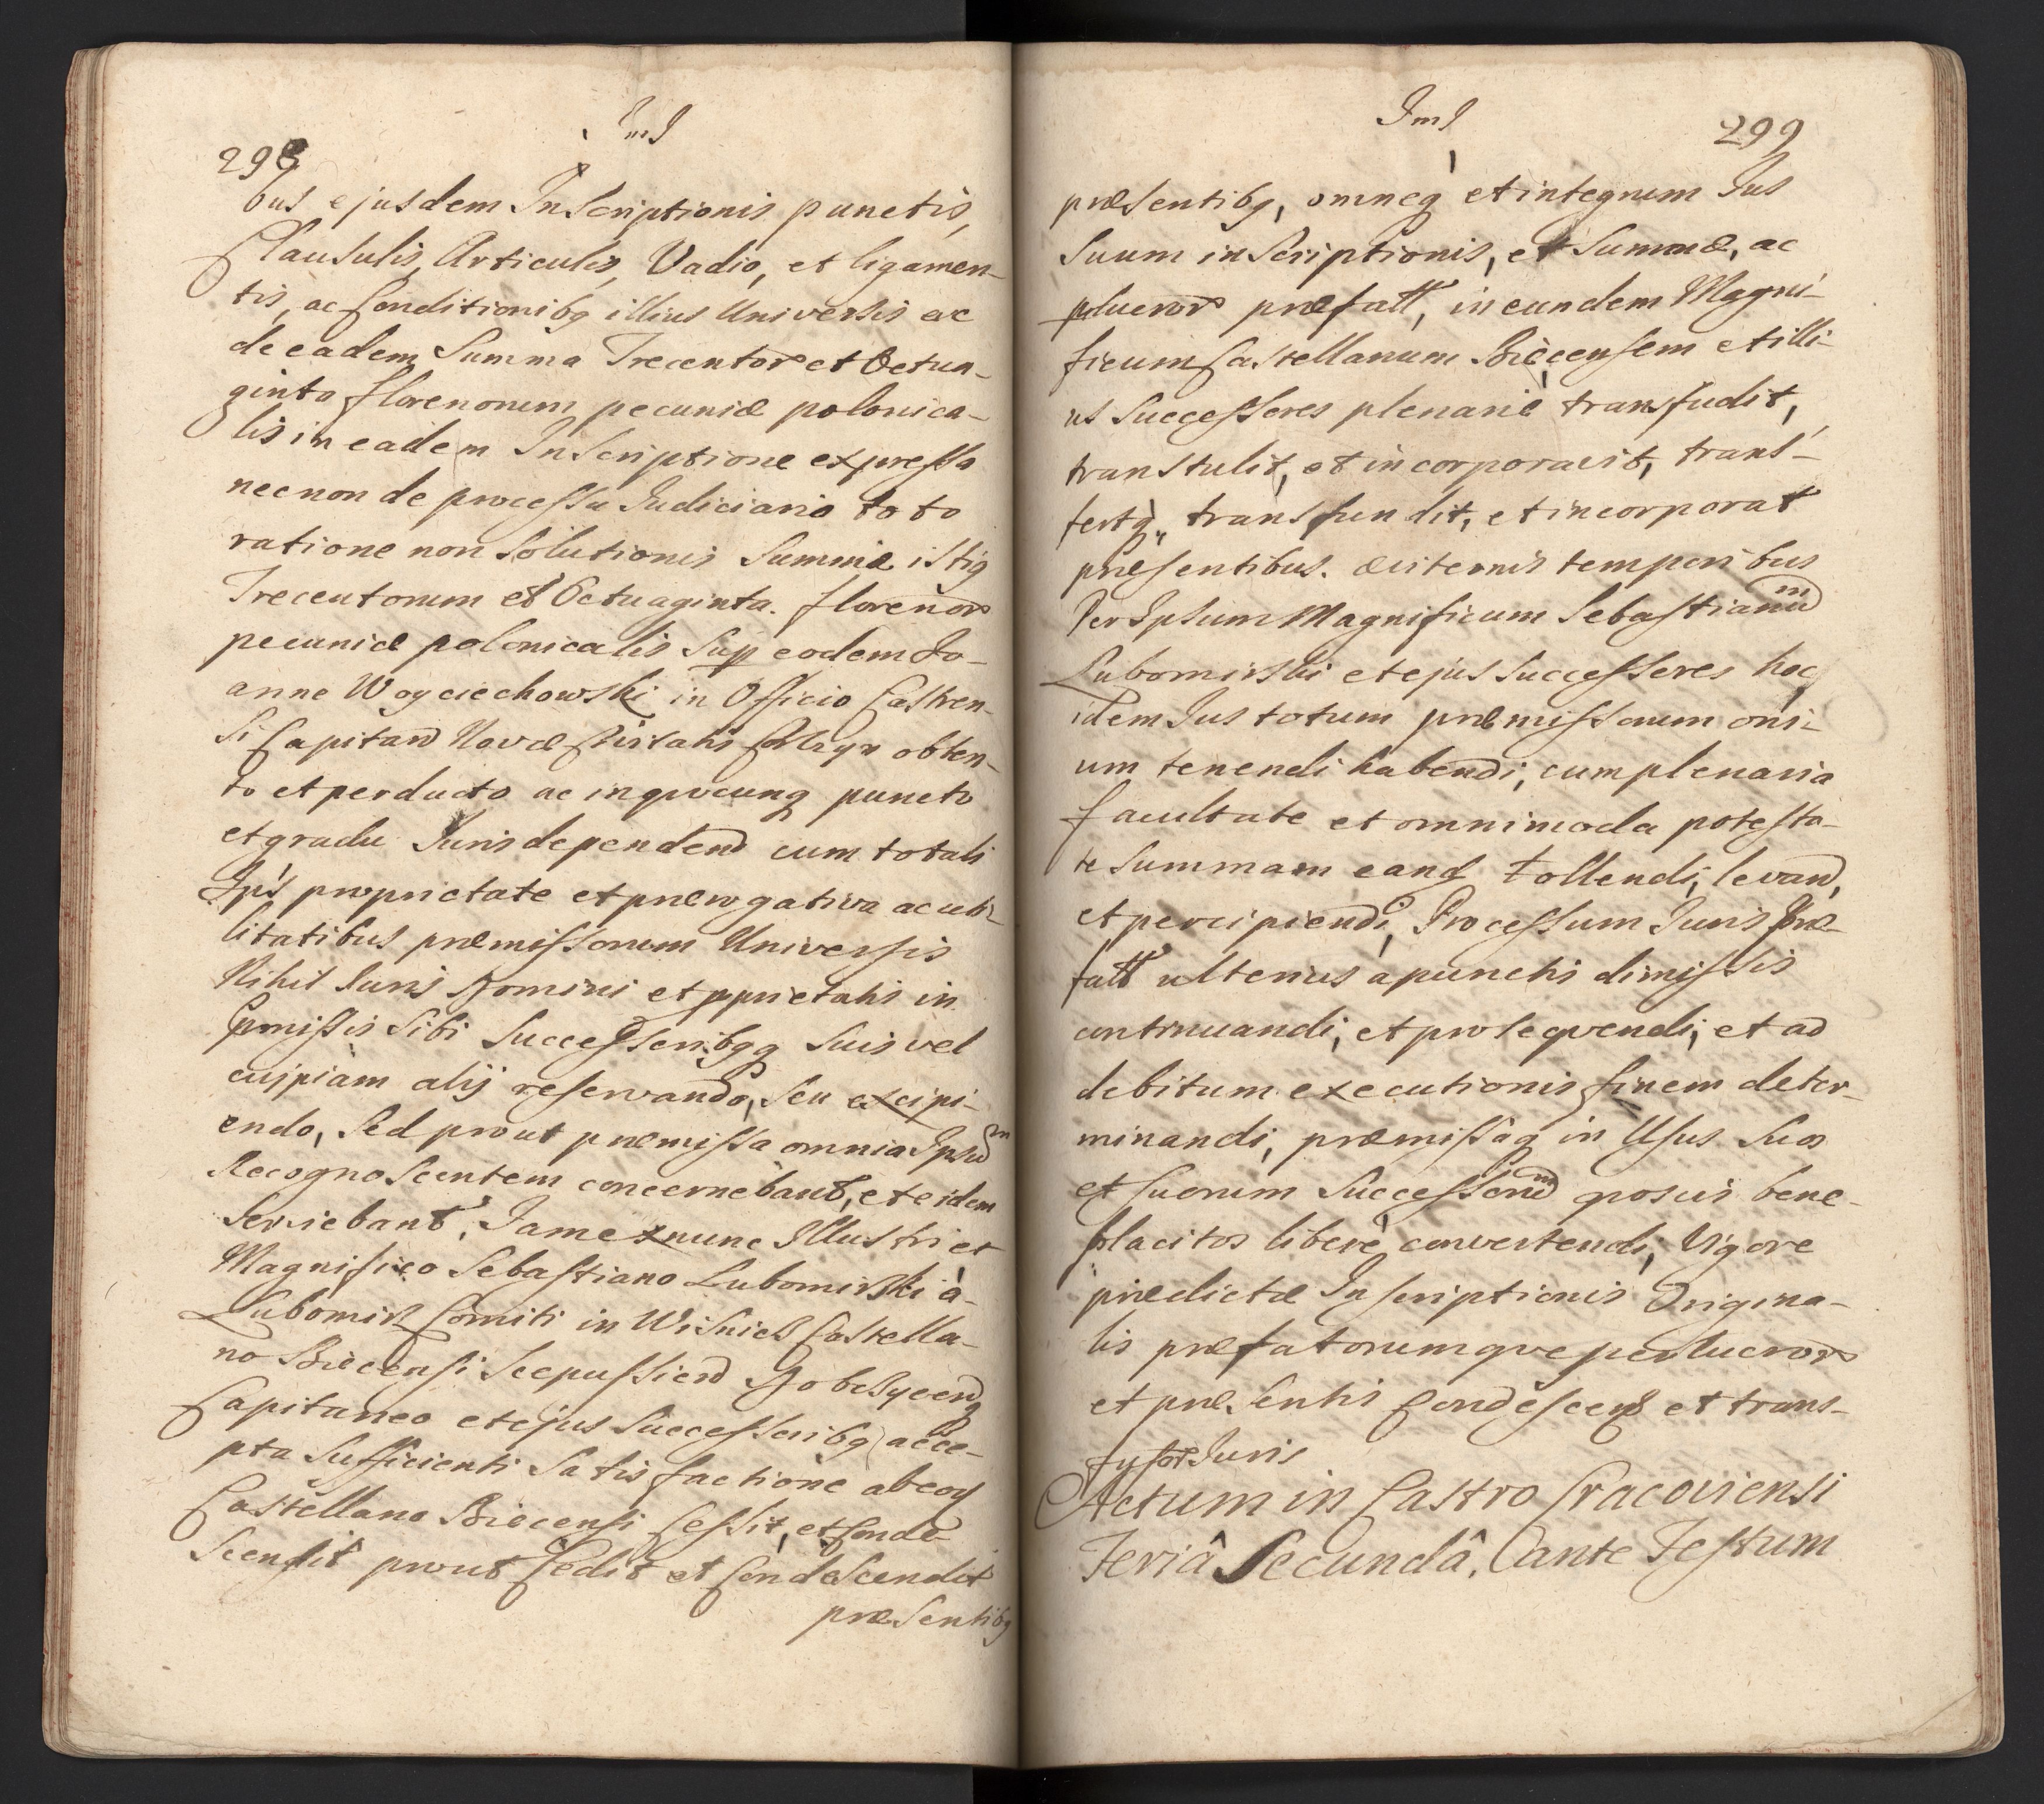 298
ImJ
bus ejusdem Inscriptionis punctis,
Clausulis, Articulis, Vadio, et ligamen-
tis, ac Conditionibq illius Universis ac
de eadem Summa Trecentor et Octua-
ginta florenorum pecuniæ polonica-
lis in eadem Inscriptione expressa
necnon de processu Judiciario toto
ratione non Solutionis Summæ istiq
Trecentorum et Octuaginta. florenor
pecuniæ polonicalis Sup eodem Jo-
anne Woyciechowski in Officio Castren-
Si Capitan Novæ Civitatis obten-
to et perducto ac in qvocunq puncto
et gradu Juris dependen cum totali
Ips proprietate et prærogativa ac uti-
litatibus præmissorum Universis
Nihil Juris Domini et pprietatis in
pmissis Sibi Successoribqq Suis vel
cuipiam alij reservando, Seu excipi-
endo, Sed prout præmissa omnia Ipsum
Recognoscentem concernebant, et eidem
Serviebant, Jam ex nunc Illustri et
Magnifico Sebastiano Lubomirski à-
Lubomir Comiti in Wisnicz Castella-
no Biecensi Scepussien Dobczycen
Capitaneo et ejus Successoribq acce-
pta Sufficienti Satisfactione ab eod
Castellano Biecensi Cessit, et Conde
Scendit prout Cedit et Condescendit
præsentibq
ImJ
299
præsentibq, omneq et integrum Jus
Suum inscriptionis, et Summæ, ac
plucror præfatt, in eundem Magni-
ficum Castellanum Biecensem et illi-
us Successores plenarie transfudit,
transtulit, et incorporavit, trans-
fertq, transfundit, et incorporat
præsentibus. æviternis temporibus
Per Ipsum Magnificum Sebastianum
Lubomirski et ejus Successores hoc
idem Jus totum præmissorum oni-
um tenendi habendi, cum plenaria
facultate et omnimoda potesta-
te Summam eand tollendi, levan,
et percipiendi, Processum Juris præ-
fatt ulterius a punctis dimissis
continuandi, et proseqvendi, et ad
debitum executionis finem deter-
minandi, præmissaq in Usus Suos
et Suorum Successorum qvosvis bene-
placitos libere convertendi, Vigore
prædictæ Inscriptionis Origina-
lis præfatorumqve perlucror
et præsentis Condescens et trans-
fusor Juris
Actum in Castro Cracoviensi
Feriâ Secundâ, ante Festum